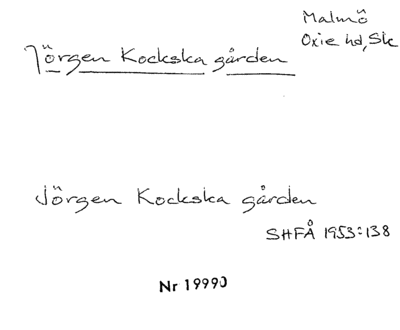 Malmö
Oxie hd, Sk
Jörgen Kockska gården
Jörgen Kockska gården
SHFÅ 1953:138
Nr 19990